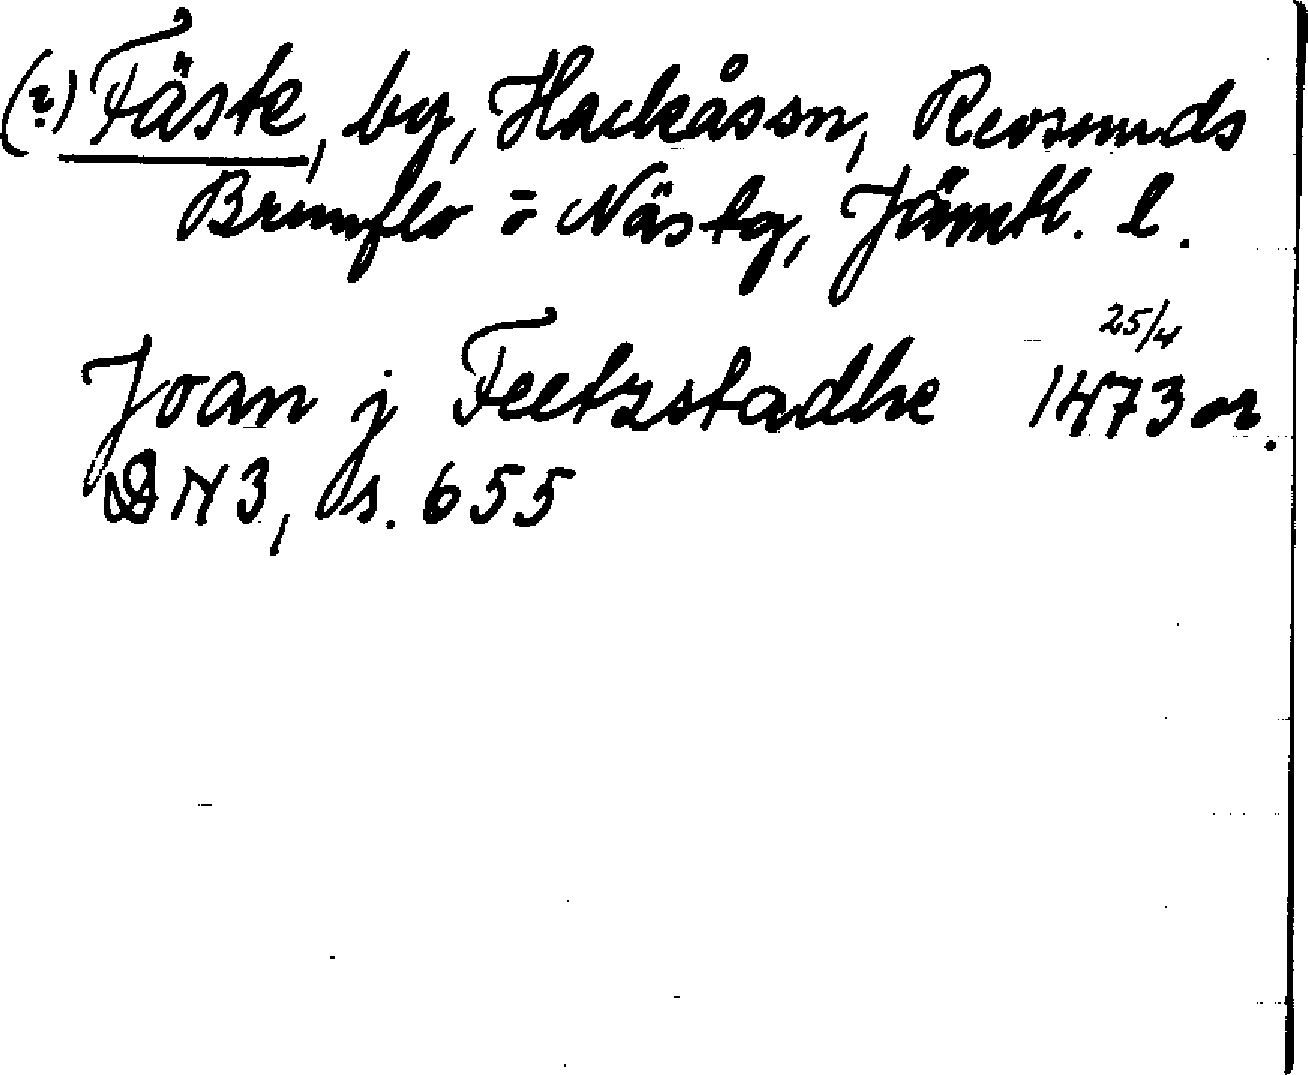 (?) Fäste, by, Hackåssn, Revsunds
Brunflo o Nästg, Jämtl. l.
25/4
Joan j Feetzstadhe 1473 or.
DN 3, s. 655